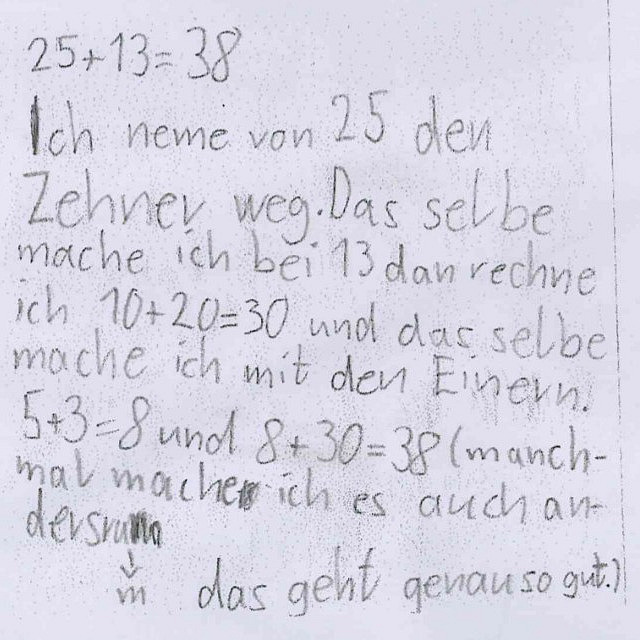 25+13=38
Ich neme von 25 den
Zehner weg. Das selbe
mache ich bei 13 dan rechne
ich 10+20=30 und das selbe
mache ich mit den Einern.
5+3=8 und 8+30=38 (manch-
mal mache ich es auch an-
dersrum
m das geht genauso gut.)